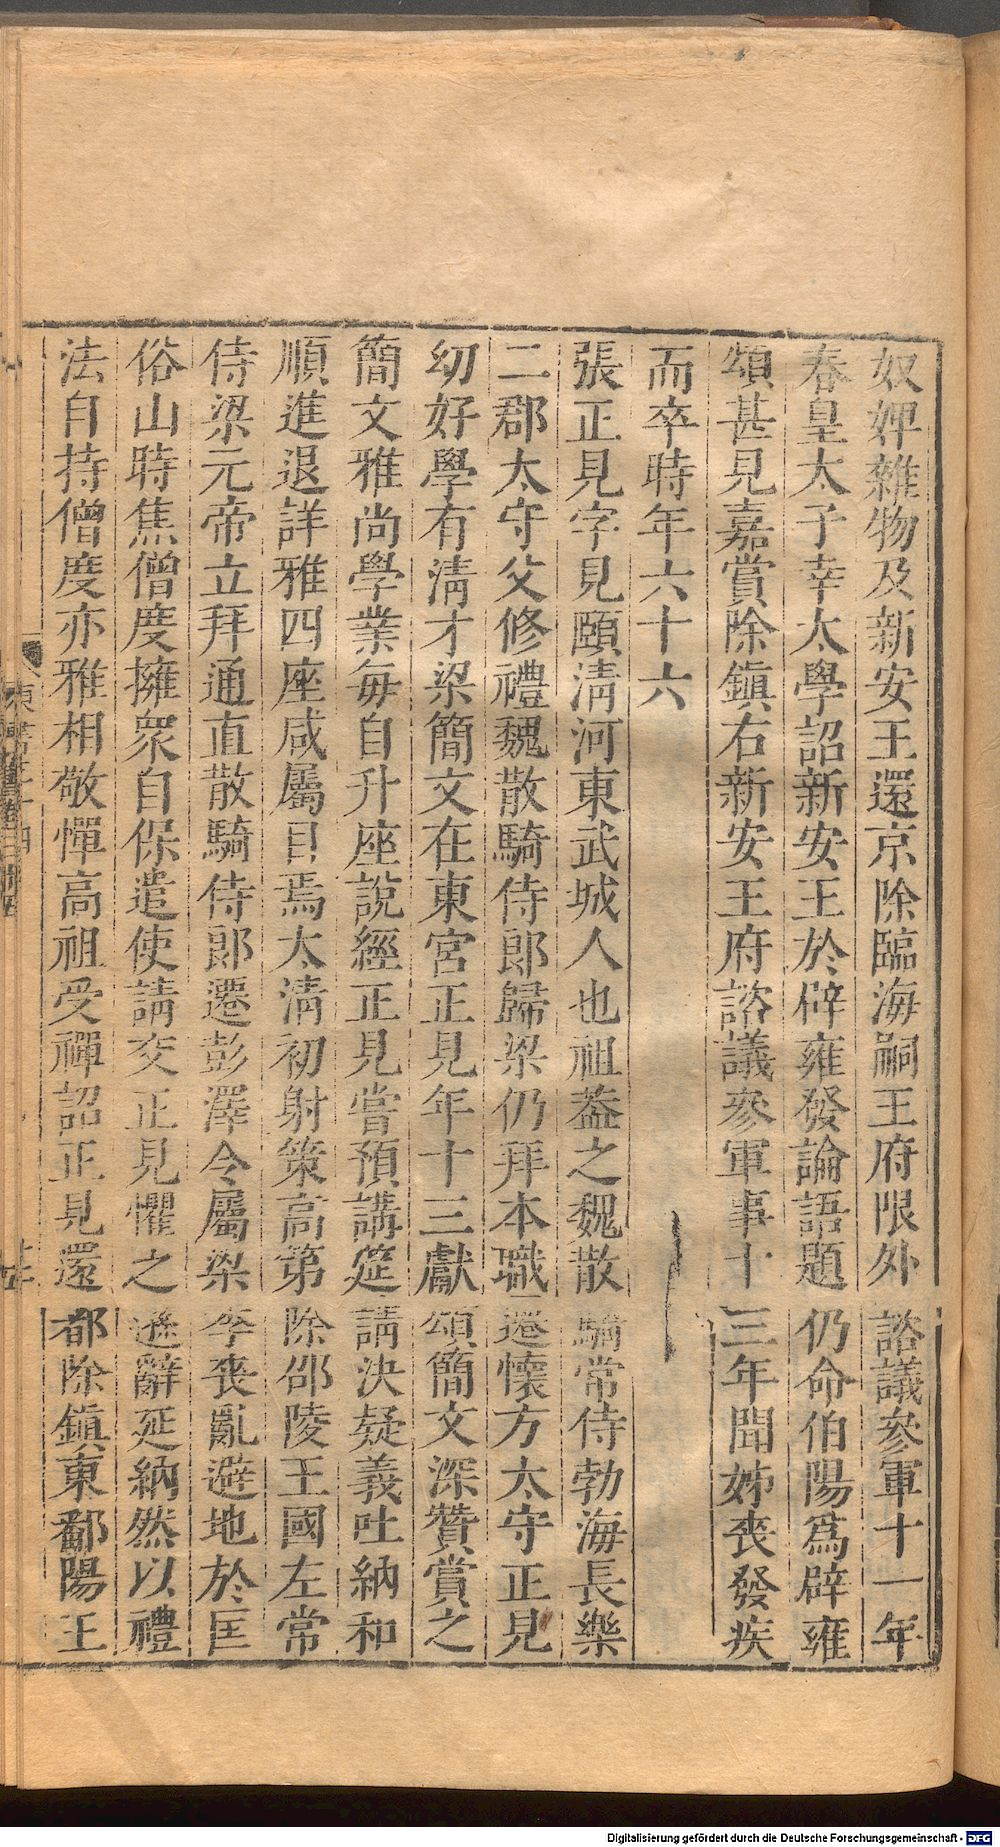 奴婢雜物及新安王還京除臨海嗣王府限外諮議參軍十一年
春皇太子幸太學詔新安王於辟雍發論語題仍命伯陽爲辟雍
頌甚見嘉賞除鎭右新安王府諮議參軍事十三年聞姊喪發疾
而卒時年六十六
張正見字見頤淸河東武城人也祖葢之魏散騎常侍勃海長樂
二郡太守父修禮魏散騎侍郞歸梁仍拜本職遷懷方太守正見
幼好學有淸才梁簡文在東宮正見年十三獻頌簡文深贊賞之
簡文雅尚學業每自升座說經正見嘗預講筵請決疑義吐納和
順進退詳雅四座咸屬目焉太淸初射策高第除邵陵王國左常
侍梁元帝立拜通直散騎侍郞遷彭澤令屬梁季喪亂避地於匡
俗山時焦僧度擁衆自保遣使請交正見懼之遜辭延納然以禮
法自持僧度亦雅相敬憚高祖受禪詔正見還都除鎭東鄱陽王
Digitalisierung gefördert durch die Deutsche Forschungsgemeinschaft - DFG